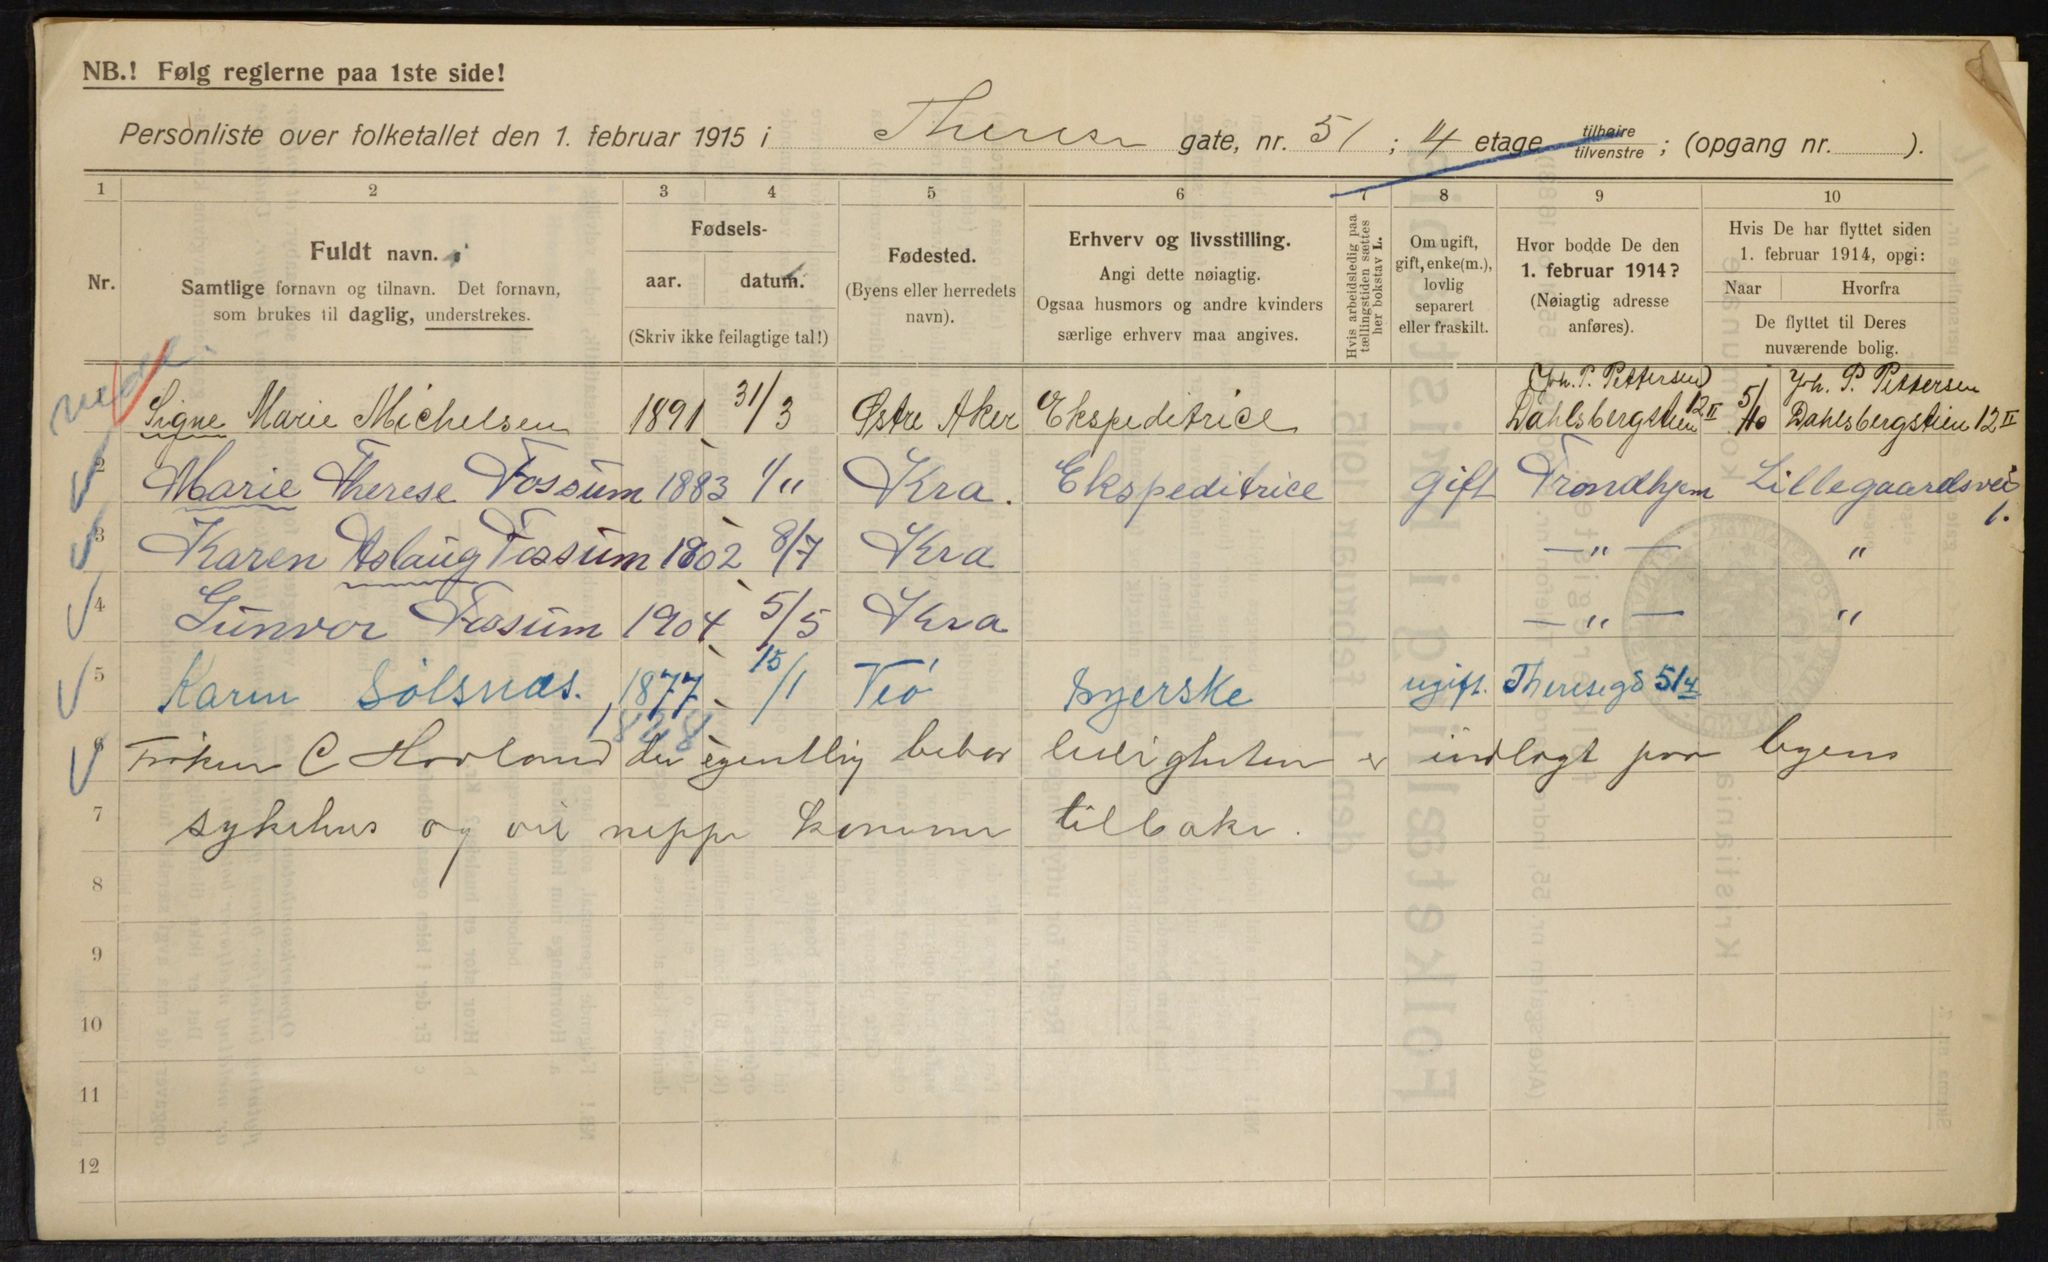 NB.! Følg reglerne paa 1ste side!
Personliste over folketallet den 1. februar 1915 i Therese gate, nr. 51 ; 4 etage tilhøire tilvenstre ; (opgang nr. ).
1 2 3 4 5 6 7 8 9 10
Nr.
Fuldt navn.
Samtlige fornavn og tilnavn. Det fornavn,
som brukes til daglig, understrekes.
Fødsels-
aar. datum.
(Skriv ikke feilagtige tal!)
Fødested.
(Byens eller herredets
navn).
Erhverv og livsstilling.
Angi dette nøiagtig.
Ogsaa husmors og andre kvinders
særlige erhverv maa angives.
Hvis arbeidsledig paa
tællingstiden sættes
her bokstav L.
Om ugift,
gift, enke(m.),
lovlig
separert
eller fraskilt.
Hvor bodde De den
1. februar 1914?
(Nøiagtig adresse
anføres).
Hvis De har flyttet siden
1. februar 1914, opgi:
Naar Hvorfra
De flyttet til Deres
nuværende bolig.
(Joh. P. Pettersen) Joh. P. Pettersen
Signe Marie Michelsen 1891 31/3 Østre Aker Ekspeditrice Dahlsbergstien 12 II 5/10 Dahlsbergstien 12 II
2 Marie Therese Fossum 1883 1/11 Kra. Ekspeditrice gift Trondhjem Lillegaardsvei 1.
3 Karen Aslaug Fossum 1902 8/7 Kra — " — "
4 Gunvor Fossum 1904 5/5 Kra — " — "
5 Karen Solsnæs. 1877 15/1 Veö Syerske ugift. Theresegd 51 4
1828
6 Frøken C Hovland der egentlig bebor leiligheten er indlagt paa byens
7 sykehus og vil neppe komme tilbake.
8
9
10
11
12